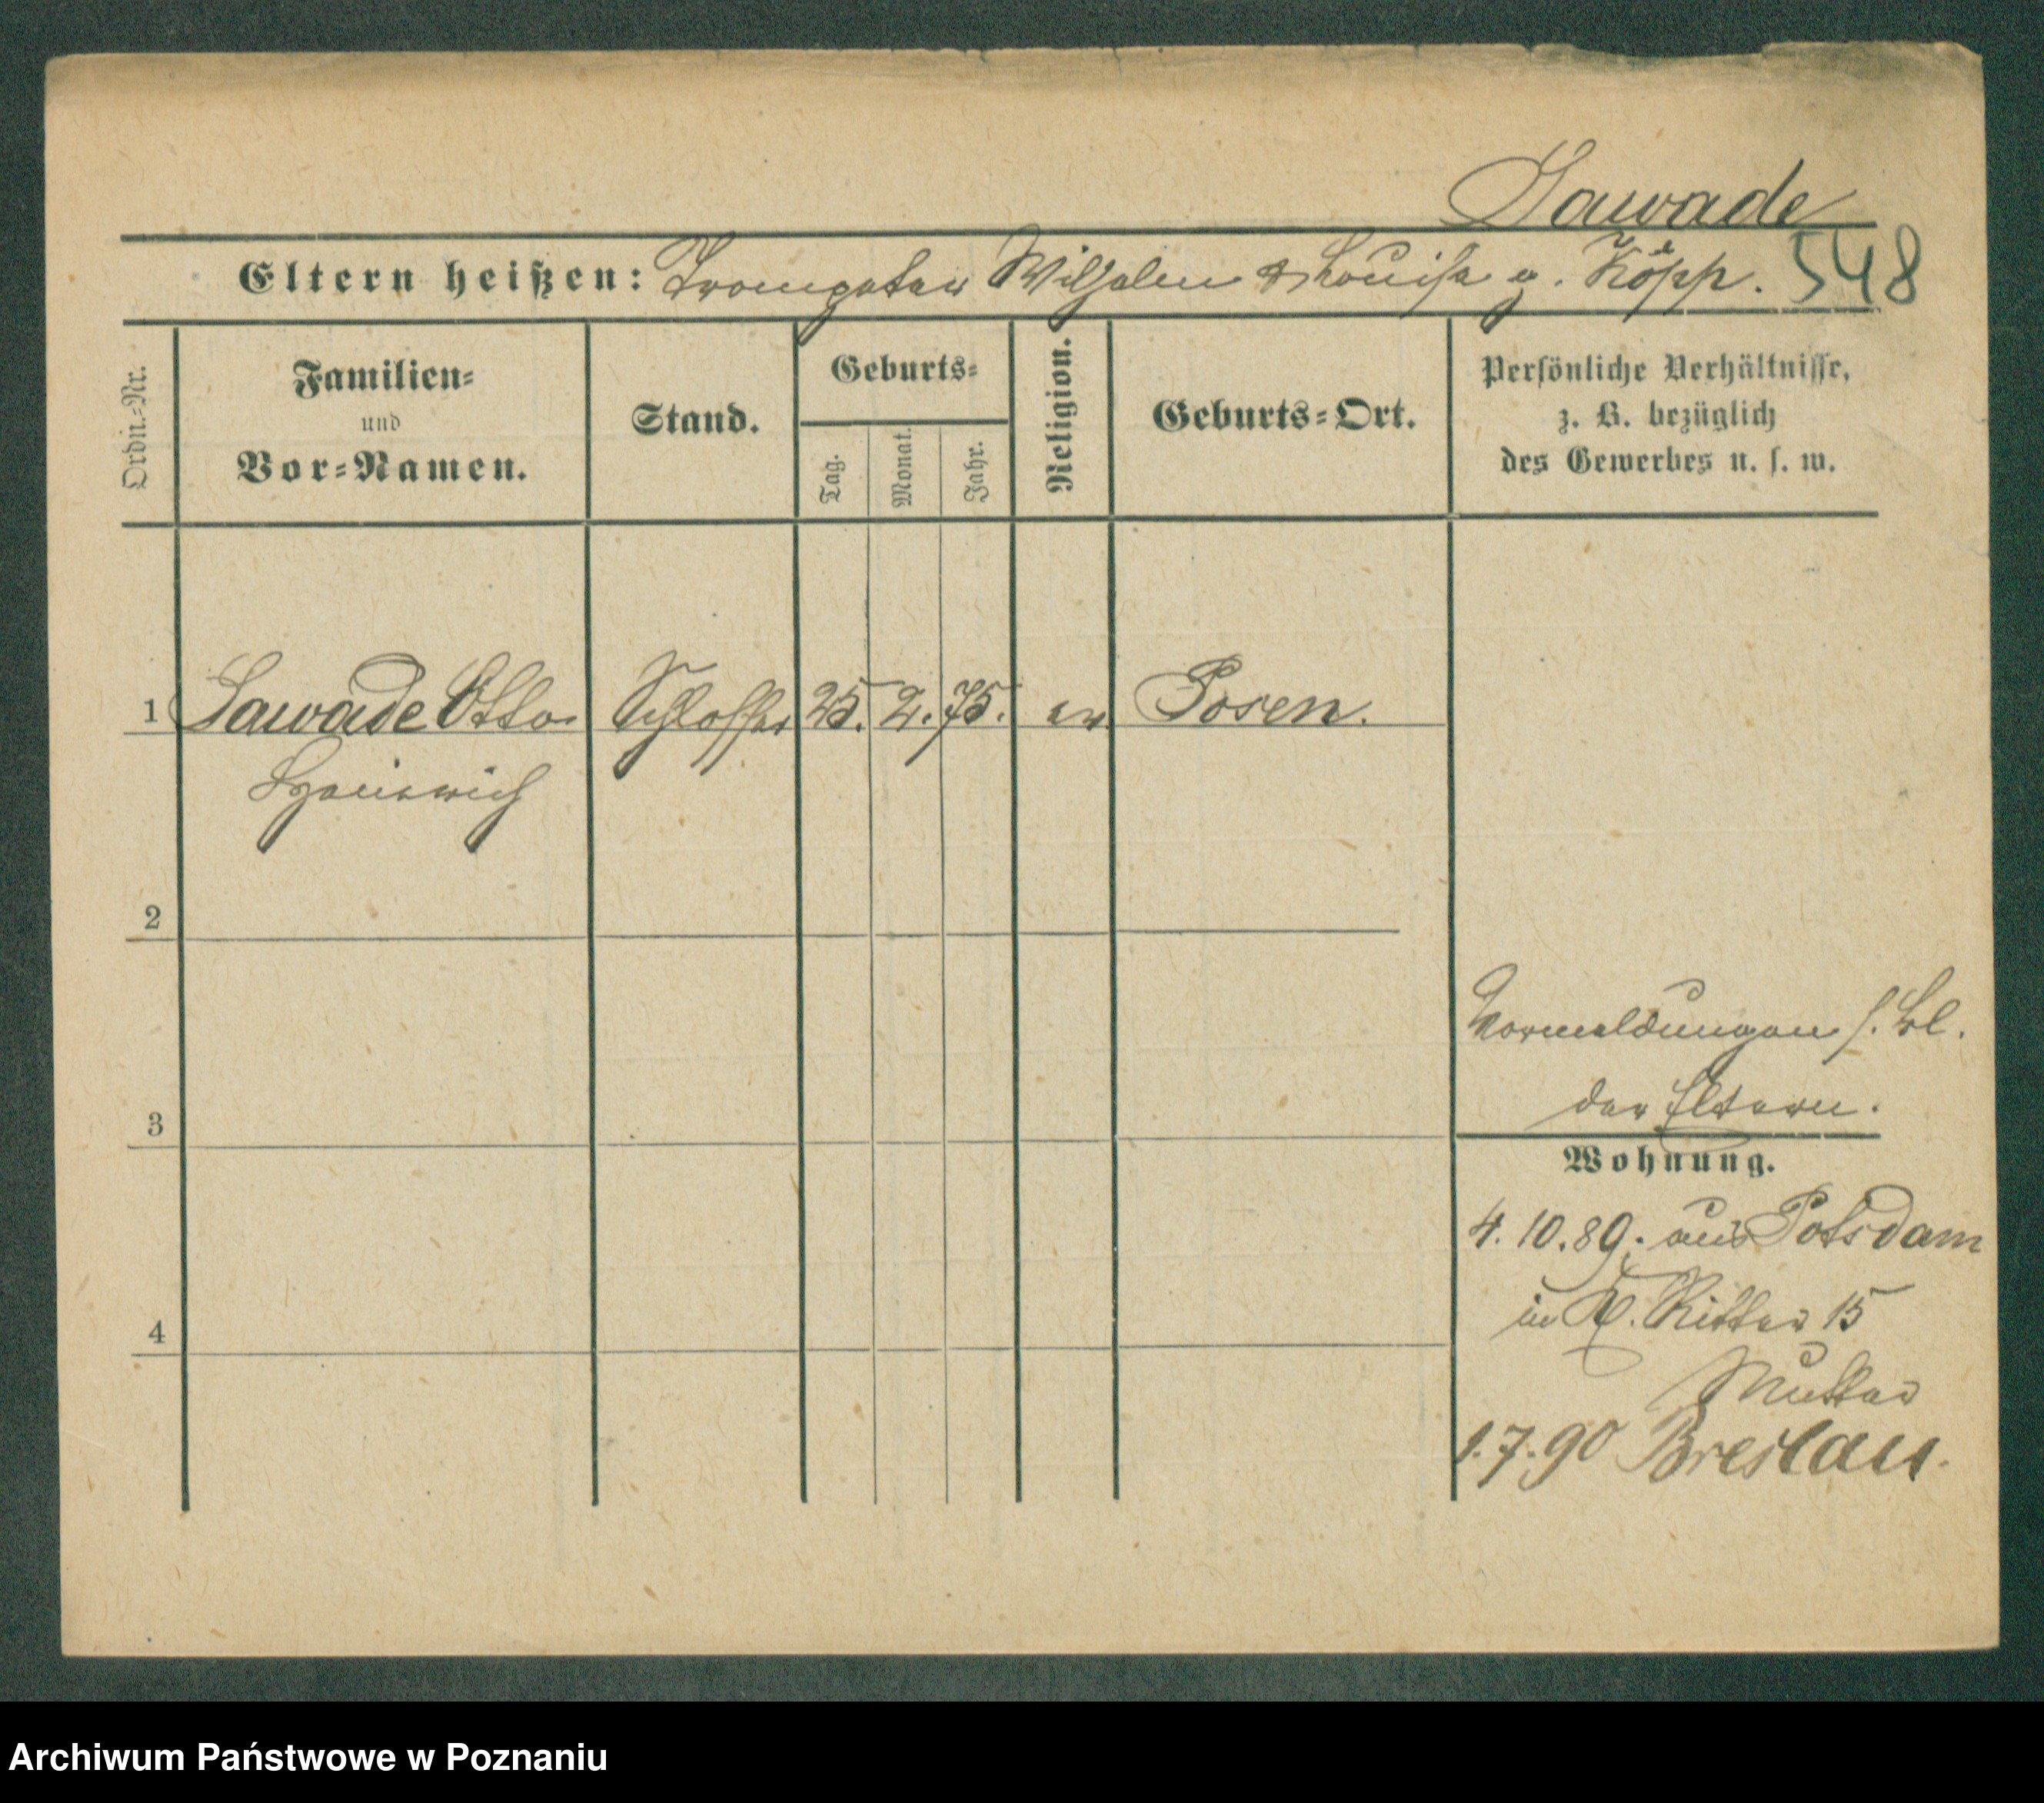 Sawade
Eltern heißen: Trompeter Wilhelm & Louise g. Köpp. 548
Ordn.-Nr.
Familien-
und
Vor-Namen.
Stand.
Geburts-
Tag.
Monat.
Jahr.
Religion.
Geburts-Ort.
Persönliche Verhältnisse,
z. B. bezüglich
des Gewerbes u. s. w.
1 Sawade Otto Schlosser 25. 2. 75. ev. Posen.
2
3
4
Vormeldungen s. Bl.
der Eltern.
Wohnung.
4.10.89. aus Potsdam
in Kl. Ritter 15
Mutter
1.7.90 Breslau.
Archiwum Państwowe w Poznaniu